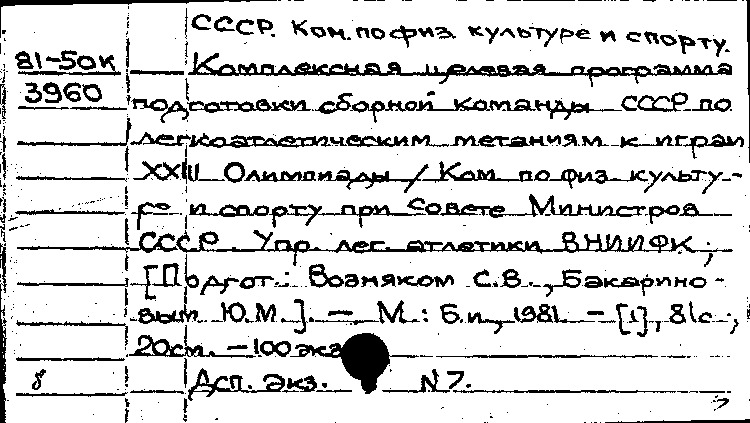 СССР. Ком. по физ. культуре и спорту.
81-50к
Комплексная целевая программа
3960
подготовки сборной команды СССР по
легкоатлетическим метаниям к играм
XXIII Олимпиады / Ком. по физ. культу-
ре и спорту при Совете Министров
СССР. Упр. лег. атлетики ВНИИФК;
[Подгот.: Возняком С.В., Бакарино-
вым Ю.М.]. — М.: Б.и., 1981. — [1], 81с.;
20см. — 100 экз
8
Дсп. Экз. N 7.